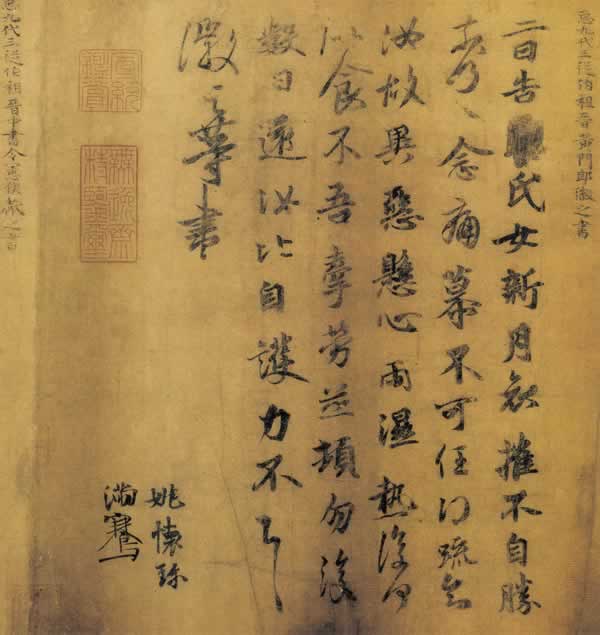 𢘑九代三從伯祖晉黃門郎徽之書
二日告氏女新月哀摧不自勝
奈何〻念痛慕不可任得疏知
汝故異惡懸心雨濕熱復何
似食不吾牽勞並頓勿復
數日還汝比自護力不具
徽之等書
姚懷珍
滿騫
𢘑九代三從伯祖晉中書令憲侯獻之書